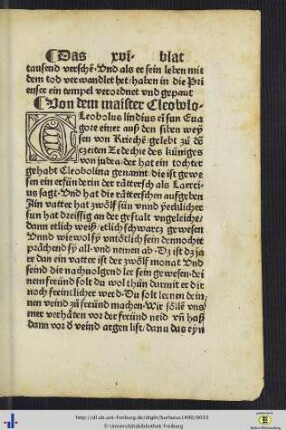 ¶Das xvi· blat
tausend verschē·Vnd als er sein leben mit
dem tod verwandlet het/haben in die Pri
enser ein tempel verordnet vnd gepaut
¶Von dem maister Cleowlo·
CLeobolus lindius eī sun Eua
gore einer auß den siben weyſ
sen von Kriechē·gelebt zů dē
czeiten Eedechie des küniges
von judea/der hat ein tochter
gehabt Cleobolina genannt·die ist gewe
sen ein erfünderin der rättersch als Laerci
us sagt·Vnd hat die rätterschen aufgeben
Ain vatter hat zwölf sün vnnd yecklicher
sun hat dreissig an der gestalt vngeleiche/
dann etlich weiß/etlich schwarcz gewesen
Vnnd wiewol sy vntötlich sein dennocht
sy all·vnd nemen ab·Dz ist dz ja
er dan ein vatter ist der zwölf monat Vnd
seind die nachuolgend ler sein gewesen·dei
nem freünd solt du wol thůn darmit er dir
noch freintlicher werd·Du solt lernen dein
nen veind zů freünd machen·Wir söllē vnß
mer verhütten vor der freünd neid vñ haß
dann vor d veind argen list·dann das eyn
http://dl.ub.uni-freiburg.de/diglit/burlaeus1490/0033
© Universitätsbibliothek Freiburg